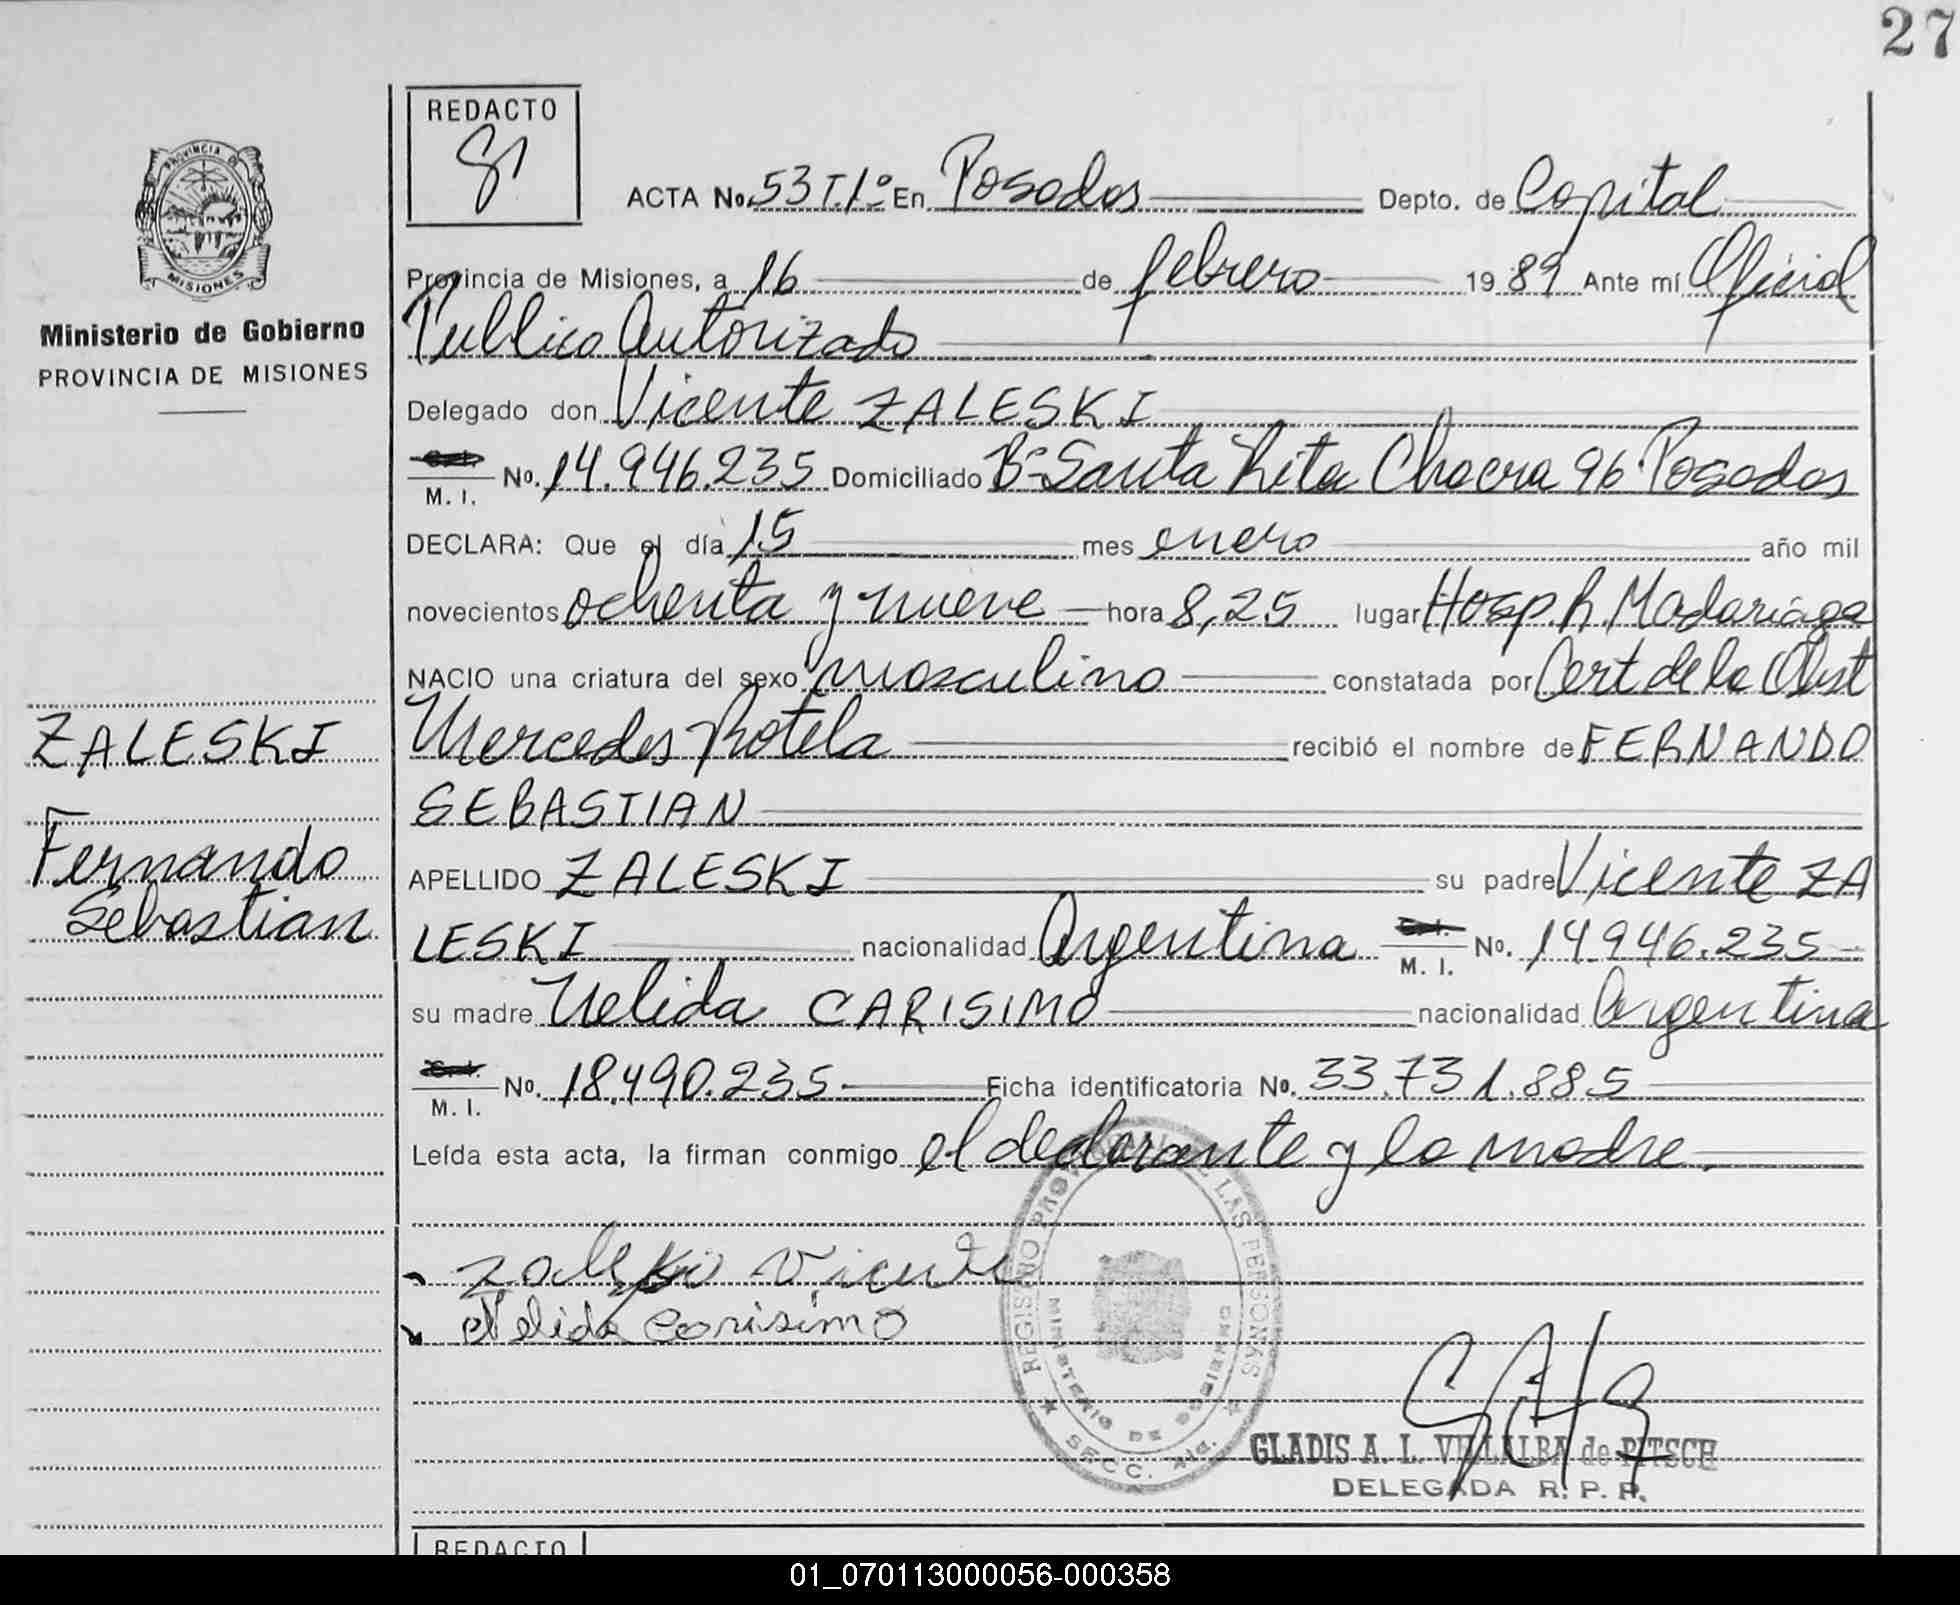 27
REDACTO
PROVINCIA DE
MISIONES
Ministerio de Gobierno
PROVINCIA DE MISIONES
ZALESKI
Fernando
Sebastian
ACTA No. 53 T.1º En Posadas Depto. de Capital
Provincia de Misiones, a 16 de febrero 1989 Ante mí Oficial
Publico Autorizado
Delegado don Vicente ZALESKI
M. I. No. 14.946.235 Domiciliado Bº Santa Rita Chacra 96 Posadas
DECLARA: Que el día 15 mes enero año mil
novecientos ochenta y nueve hora 8,25 lugar Hosp. R. Madariaga
NACIO una criatura del sexo masculino constatada por Cert de la Obst
Mercedes Rotela recibió el nombre de FERNANDO
SEBASTIAN
APELLIDO ZALESKI su padre Vicente ZA
LESKI nacionalidad Argentina M. I. No. 14.946.235
su madre Nelida CARISIMO nacionalidad Argentina
M. I. No. 18.490.235 Ficha identificatoria No. 33.731.885
Leída esta acta, la firman conmigo el declarante y la madre.
Zaleski Vicente
Nelida Carisimo
REGISTRO PROVINCIAL DE LAS PERSONAS
MINISTERIO DE GOBIERNO
GLADIS A. L. VILLALBA de PITSCH
DELEGADA R. P. P.
REDACTO
01_070113000056-000358